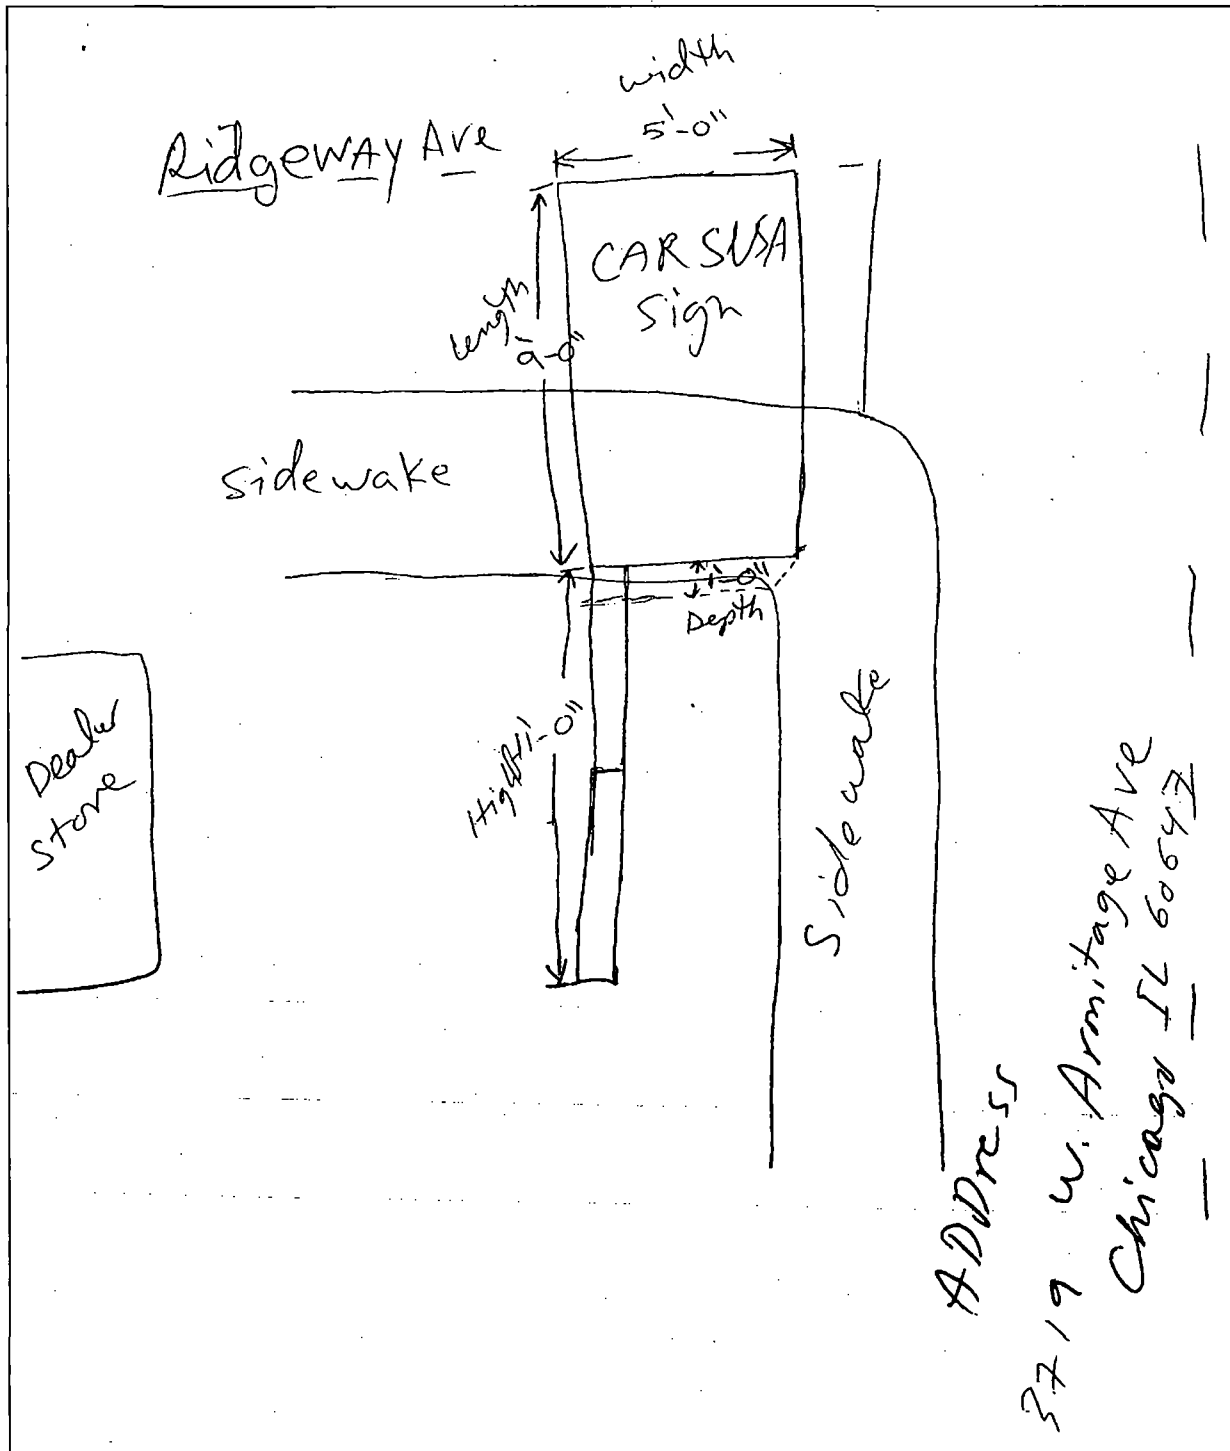 width
5'-0"
Ridgeway Ave
CARSUSA
sign
length
9'-0"
sidewake
1'-0"
Depth
Dealer
store
Sidewake
ADDress
3719 W. Armitage Ave
Chicago IL 60647